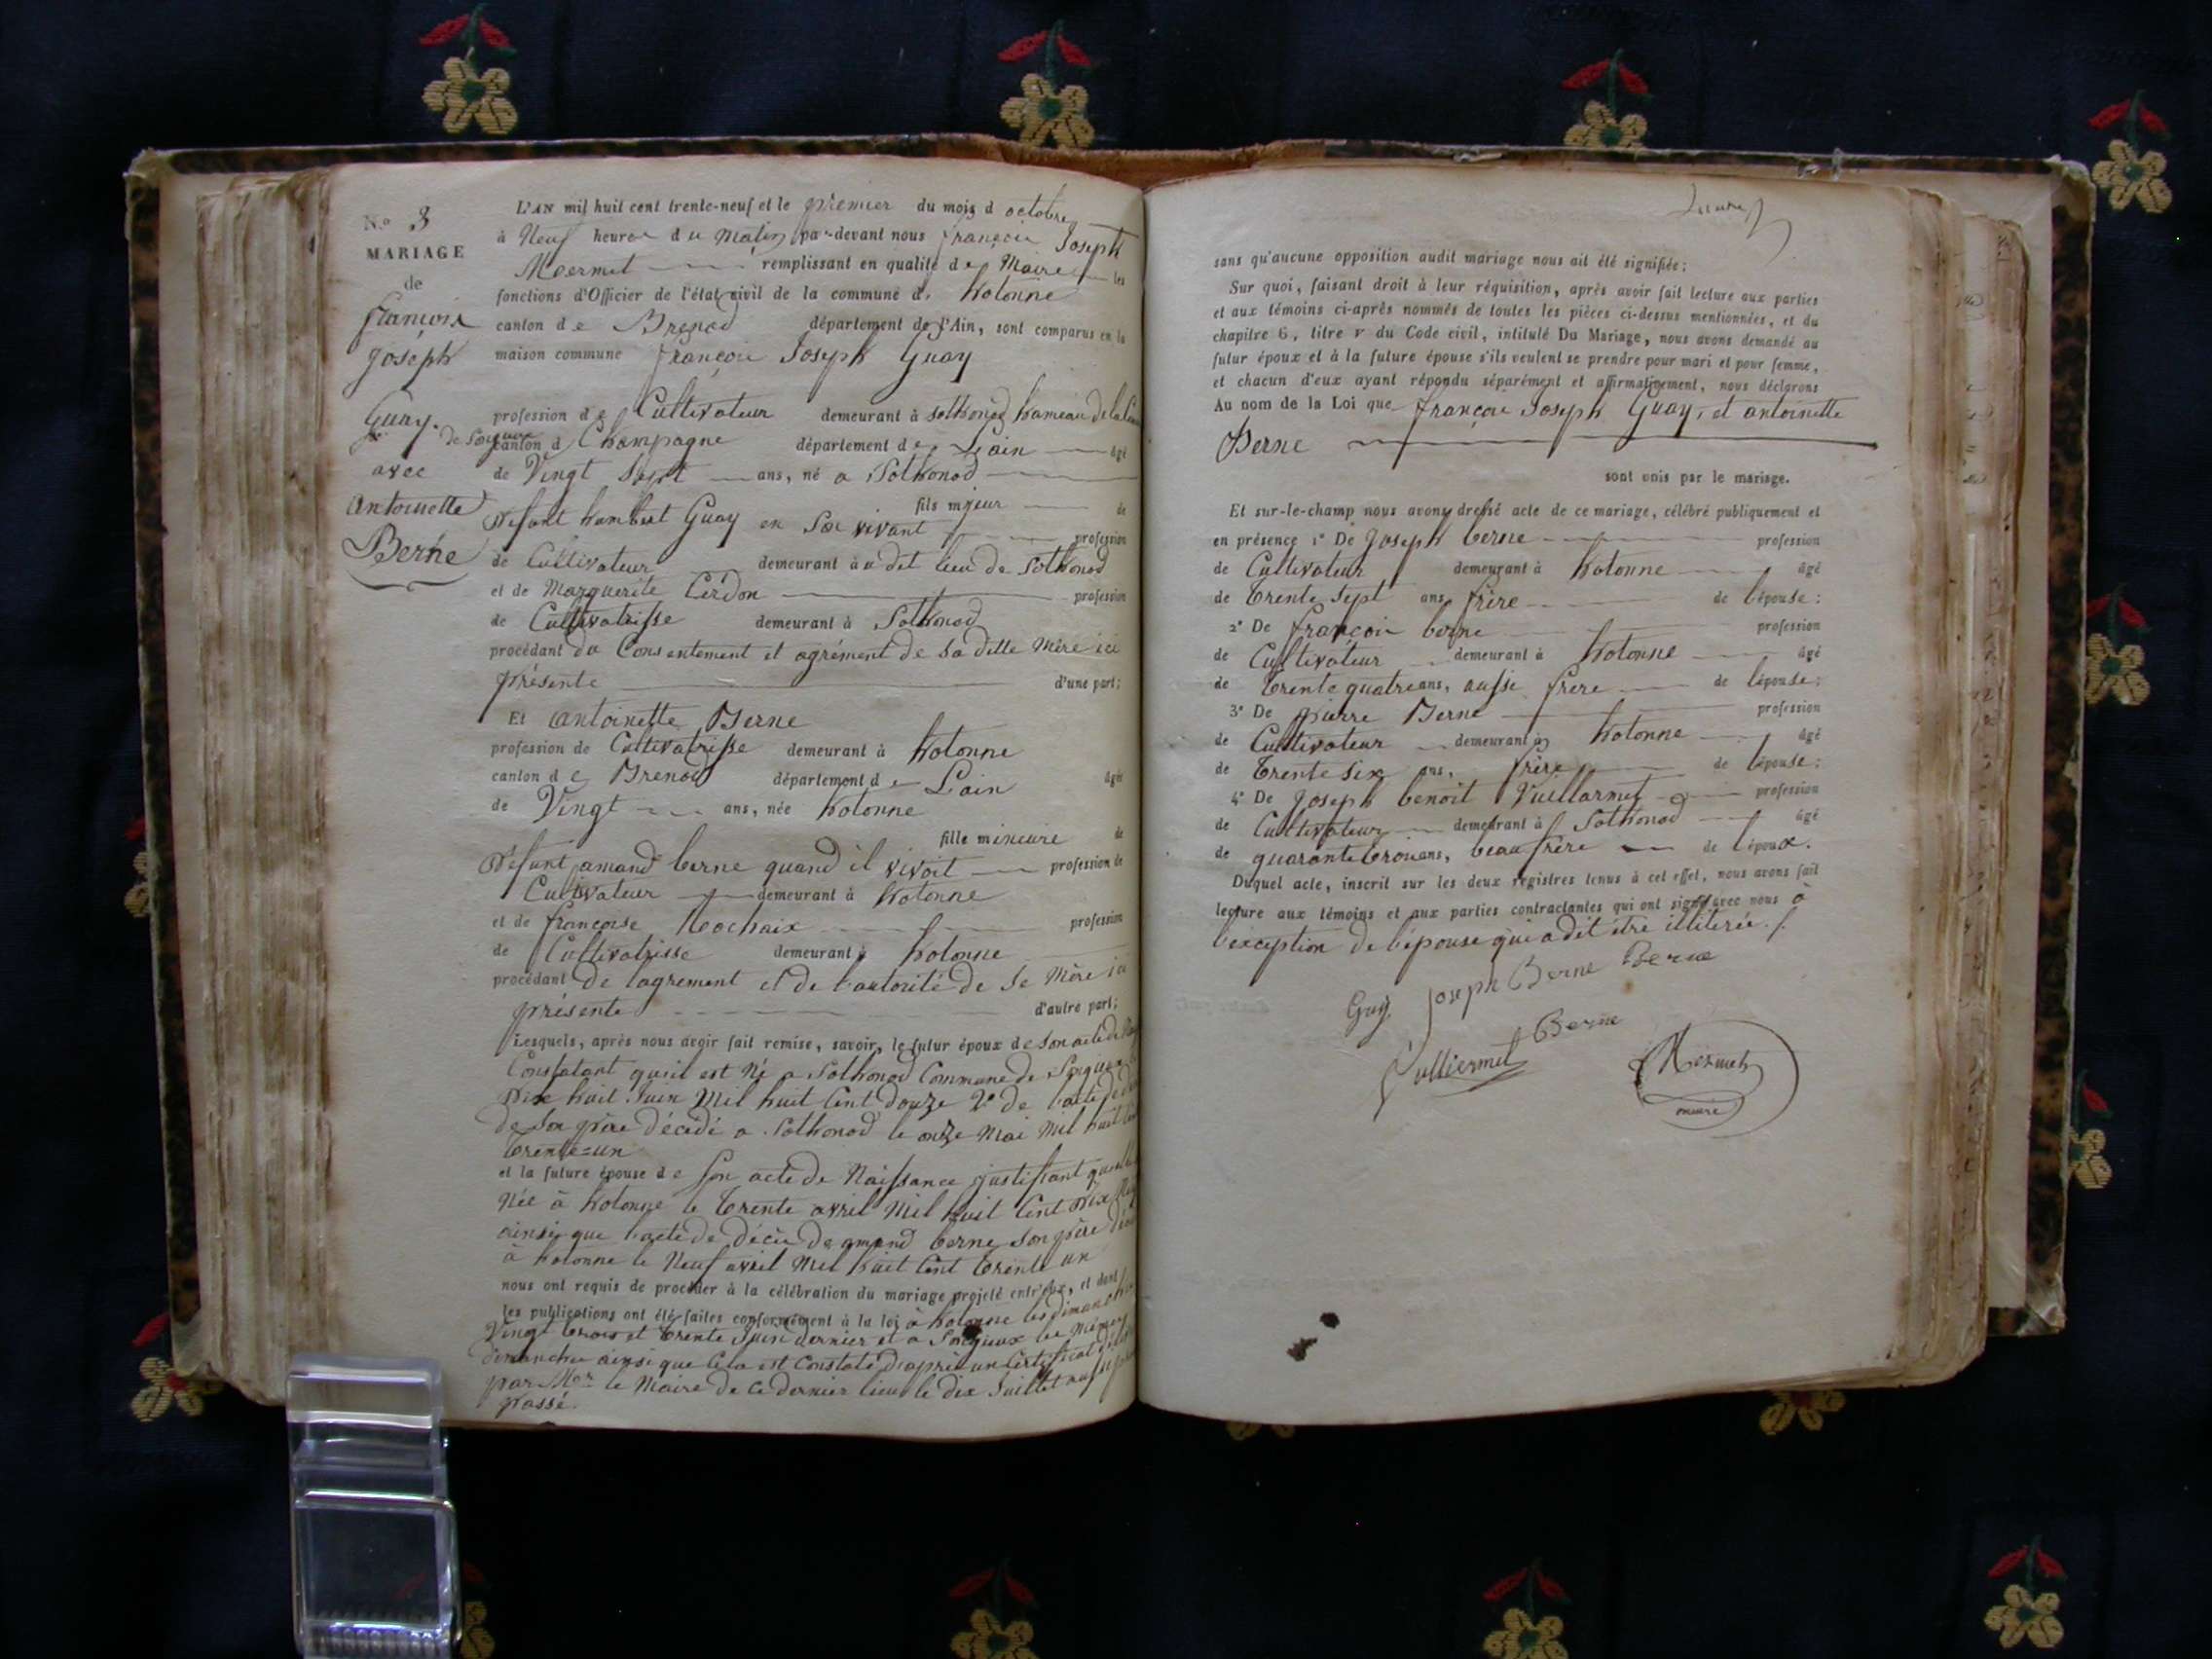 N.o 3
MARIAGE
de
françois
joseph
Guay.
avec
antoinette
Berne
L'AN mil huit cent trente-neuf et le premier du mois d octobre
à Neuf heures du Matin par-devant nous françois Joseph
Mermet remplissant en qualité de Maire les
fonctions d'Officier de l'état civil de la commune d. hotonne
canton de Brenod département de l'Ain, sont comparus en la
maison commune françois Joseph Guay
profession de Cultivateur demeurant à sothonod hameau de la
de Songieux canton d Champagne département de Lain âgé
de Vingt Sept ans, né a Sothonod
fils majeur de
Defunt humbert Guay en Son vivant profession
de Cultivateur demeurant à u dit lieu de Sothonod
et de Marguerite Cerdon profession
de Cultivatrisse demeurant à Sothonod
procédant du Consentement et agrément de sa ditte Mère ici
présente d'une part;
Et antoinette Berne
profession de Cultivatrisse demeurant à hotonne
canton de Brenod département de Lain âgée
de Vingt ans, née hotonne
fille mineure de
Defunt amand berne quand il vivoit profession de
Cultivateur demeurant à hotonne
et de françoise Rochaix profession
de Cultivatrisse demeurant à hotonne
procédant de lagrement et de l'autorité de Se Mère ici
présente d'autre part;
Lesquels, après nous avoir fait remise, savoir, le futur époux de son acte de
Constatant quil est Né a Sothonod Commune de Songieux
Dix huit Juin Mil huit Cent douze 2o de l'acte de
de Son père décédé a Sothonod le onze Mai Mil huit Cent
trente=un
et la future épouse de Son acte de Naissance justifiant quelle
Née à hotonne le trente avril Mil huit Cent Dix Neuf
ainsi que l'acte de décès de amand berne son père décédé
à hotonne le Neuf avril Mil huit Cent trente un
nous ont requis de procéder à la célébration du mariage projeté entr'eux, et dont
les publications ont été faites conformément à la loi à hotonne les dimanches
Vingt trois et trente Juin dernier et a Songieux les Mêmes
dimanches ainsi que Cela est Constaté d'après un Certificat délivré
par Mr. le Maire de Ce dernier lieu le dix Juillet
passé.
sans qu'aucune opposition audit mariage nous ait été signifiée;
Sur quoi, faisant droit à leur réquisition, après avoir fait lecture aux parties
et aux témoins ci-après nommés de toutes les pièces ci-dessus mentionnées, et du
chapitre 6, titre v du Code civil, intitulé Du Mariage, nous avons demandé au
futur époux et à la future épouse s'ils veulent se prendre pour mari et pour femme,
et chacun d'eux ayant répondu séparément et affirmativement, nous déclarons
Au nom de la Loi que françois Joseph Guay, et antoinette
Berne
sont unis par le mariage.
Et sur-le-champ nous avons dressé acte de ce mariage, célébré publiquement et
en présence 1o De Joseph berne profession
de Cultivateur demeurant à hotonne âgé
de trente Sept ans frère de lépouse;
2o De françois berne profession
de Cultivateur demeurant à hotonne âgé
de trente quatre ans, aussi frere de lépouse;
3o De pierre Berne profession
de Cultivateur demeurant à hotonne âgé
de trente Six ans, frère de lépouse;
4o De Joseph benoit Vuillermet profession
de Cultivateur demeurant à Sothonod âgé
de quarante trois ans, beau frère de lépoux.
Duquel acte, inscrit sur les deux registres tenus à cet effet, nous avons fait
lecture aux témoins et aux parties contractantes qui ont signé avec nous à
l'exception de l'épouse qui a dit être illiterée.
Guy. Joseph Berne Berne
Vulliermet Berne
Mermet
maire